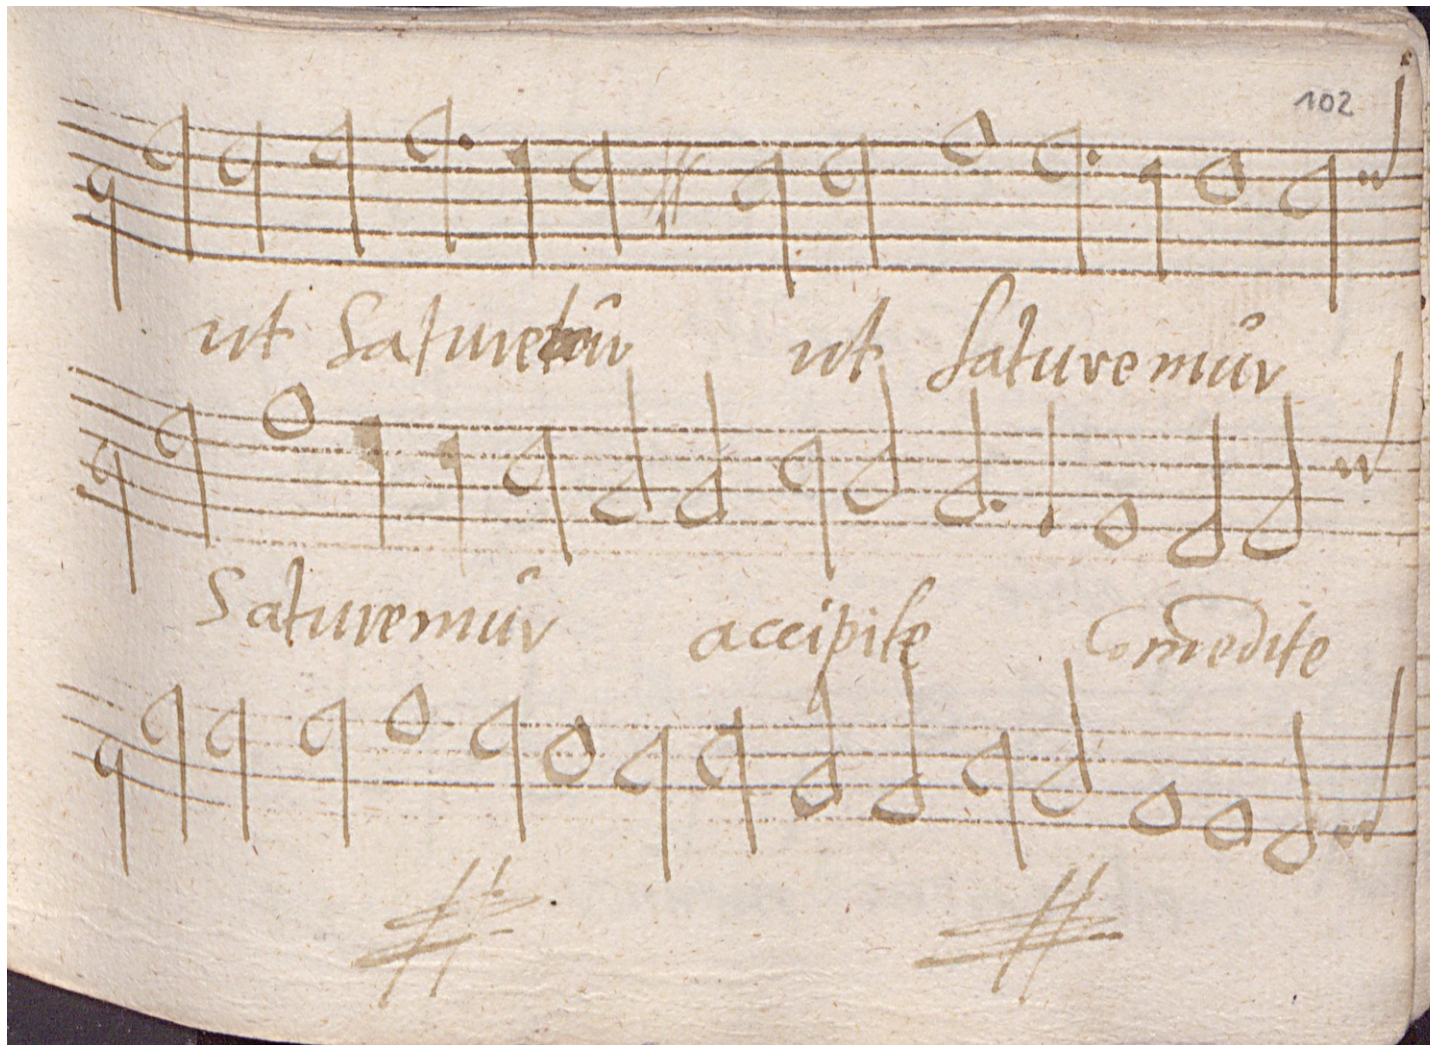 102
ut Saturemur
ut saturemûr
Saturemûr accipite Comedite